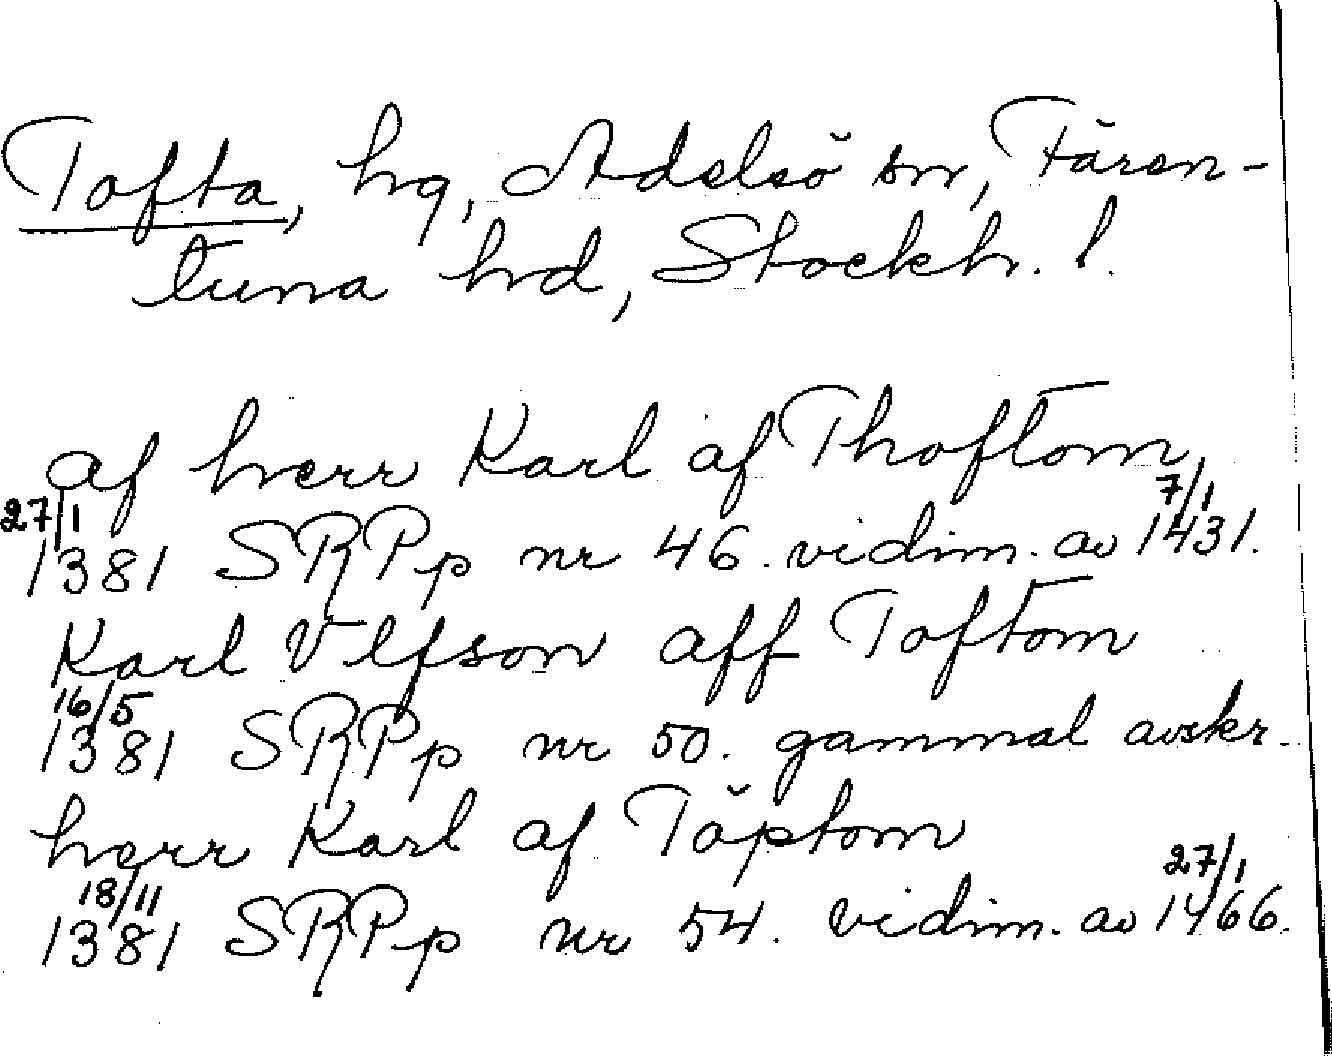 Tofta, hg, Adelsö sn, Fären-
tuna hd, Stockh. l.
af herr Karl af Thoftom
27/1 1381 SRPp nr 46. vidim. av 7/1 1431.
Karl Vlfson aff Toftom
16/5 1381 SRPp nr 50. gammal avskr.
herr Karl af Töptom
18/11 1381 SRPp nr 54. vidim. av 27/1 1466.